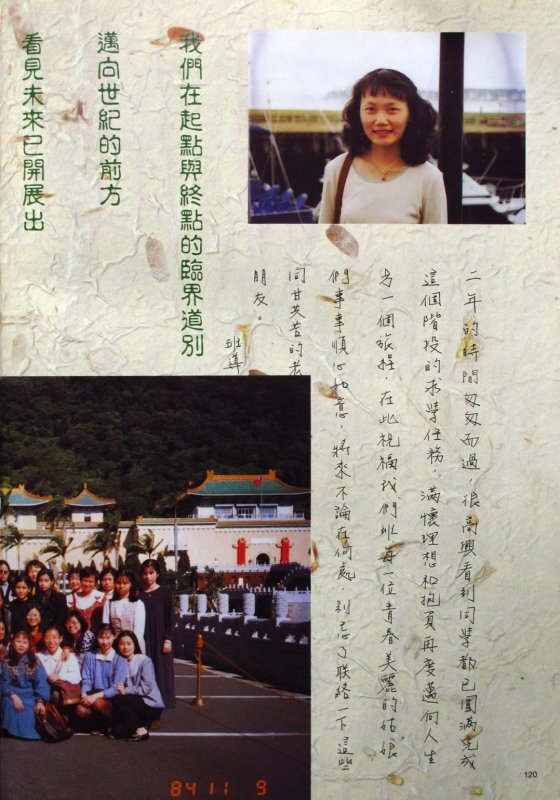 我們在起點與終點的臨界道別
邁向世紀的前方
看見未來已開展出
二年的時間匆匆而過，很高興看到同學都已圓滿完成
這個階段的求學任務，滿懷理想和抱負再度邁向人生
另一個旅程，在此祝福我們班每一位青春美麗的姑娘
們事事順心如意，將來不論在何處，別忘了聯絡一下這些
同甘共苦的老
朋友。
班導
84 11 9
120